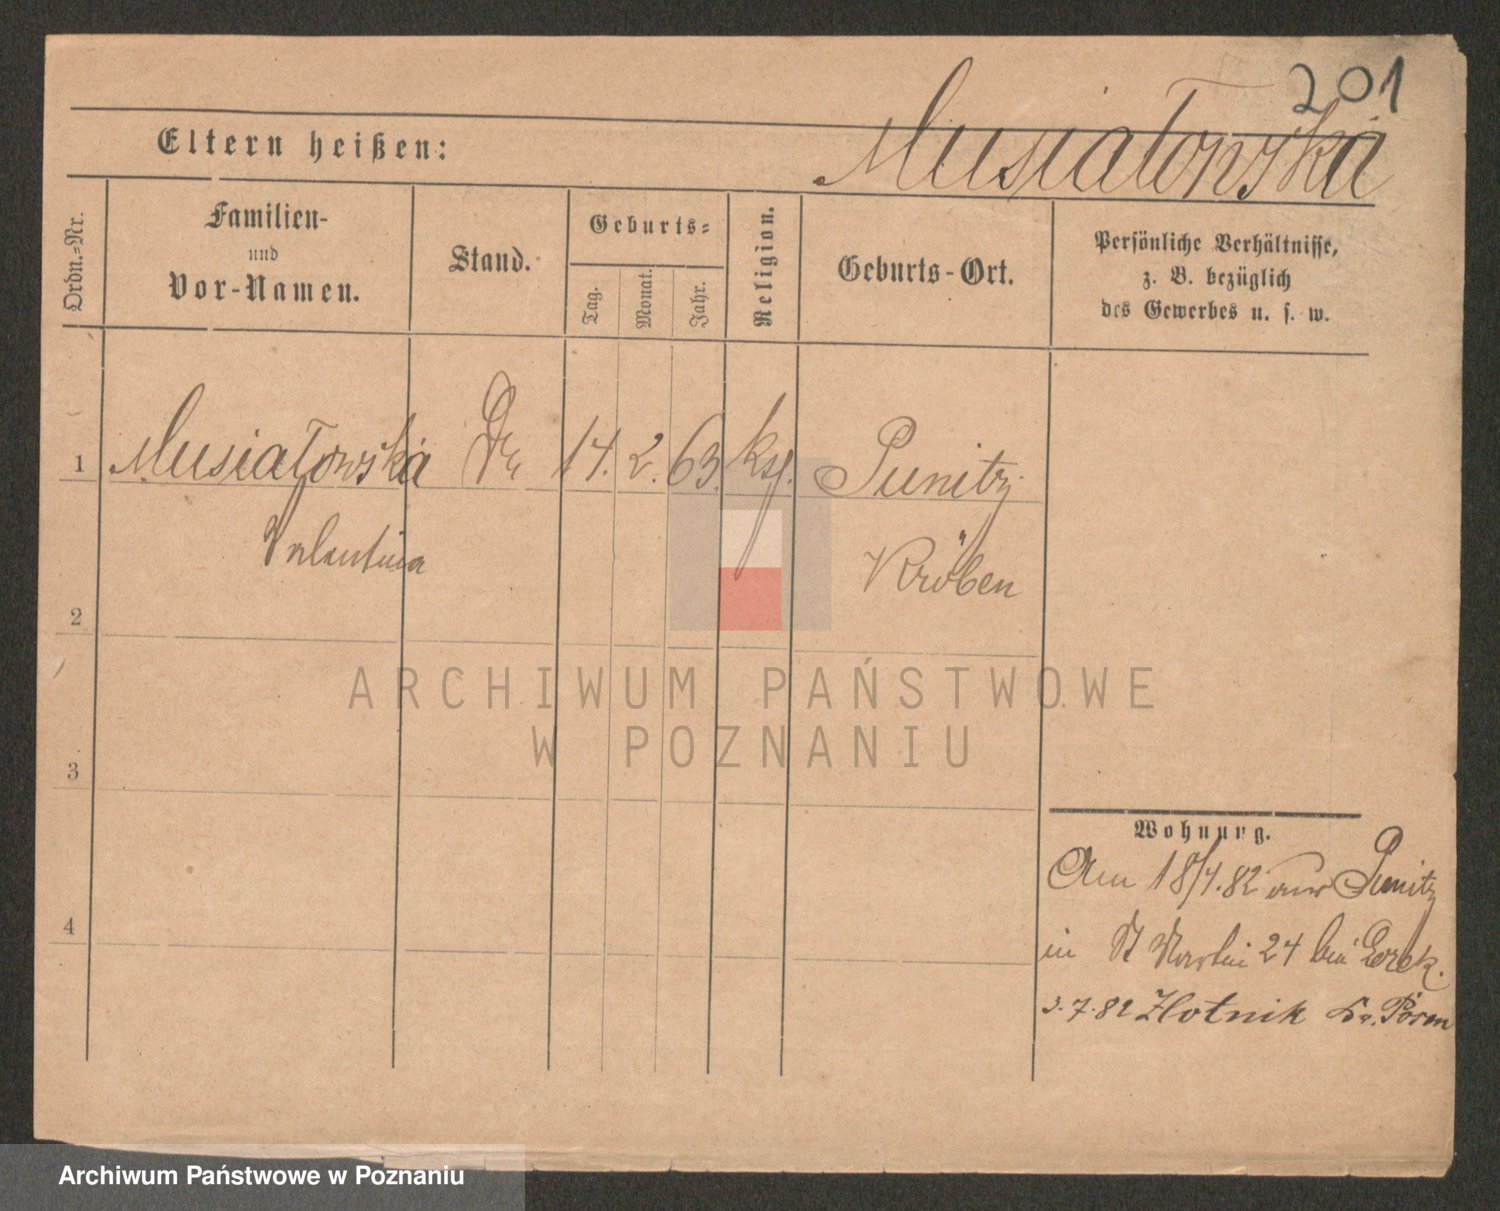 201
Musiatowska
Eltern heißen:
Ordn.-Nr.
Familien-
und
Vor-Namen.
Stand.
Geburts-
Tag.
Monat.
Jahr.
Religion.
Geburts-Ort.
Persönliche Verhältnisse,
z. B. bezüglich
des Gewerbes u. s. w.
1 Musiatowska 14. 2. 63. Punitz
Valentina Kröben
2
ARCHIWUM PAŃSTWOWE
W POZNANIU
3
Wohnung.
Am 18/4.82 aus Punitz
4
in St Martin 24 bei
3.7.82 Zlotnik Kr. Posen
Archiwum Państwowe w Poznaniu